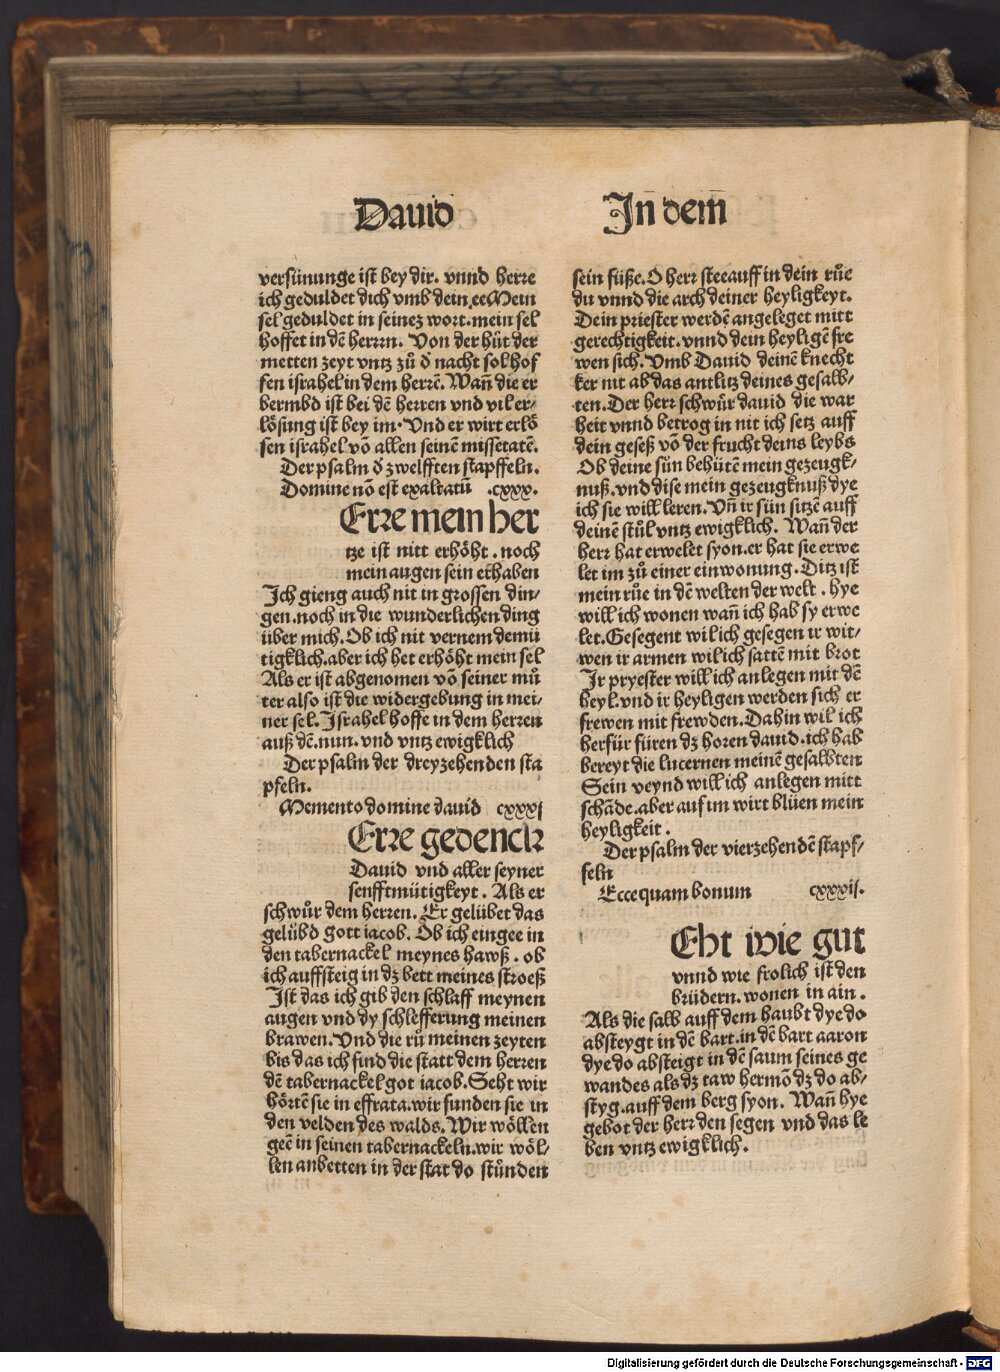 Dauid
versünunge ist bey dir. vnnd herre
ich geduldet dich vmb dein ee Mein
sel geduldet in seinez wort. mein sel
hoffet in dē herrn. Von der hůt der
metten zeyt vntz zů ð nacht sol hof
fen israhel in dem herrē. Wañ die er
bermbd ist bei dē herren vnd vil er⸗
lösung ist bey im. Vnd er wirt erlö
sen israhel võ allen seinē missetatē.
Der psalm ð zwelfften stapffeln.
Domine nō est exaltatū .cxxx.
Erre mein her
tze ist nitt erhöht. noch
mein augen sein erhaben
Ich gieng auch nit in grossen din⸗
gen. noch in die wunderlichen ding
über mich. Ob ich nit vernem demü
tigklich. aber ich het erhöht mein sel
Als er ist abgenomen võ seiner mů
ter also ist die widergebung in mei⸗
ner sel. Israhel hoffe in dem herren
auß dē. nun. vnd vntz ewigklich
Der psalm der dreyzehenden sta
pfeln.
Memento domine dauid cxxxj
Erre gedenck
Dauid vnd aller seyner
senfftmütigkeyt. Als er
schwůr dem herren. Er gelübet das
gelübd gott iacob. Ob ich eingee in
den tabernackel meynes hawß. ob
ich auffsteig in dz bett meines stroeß
Ist das ich gib den schlaff meynen
augen vnd dy schlefferung meinen
brawen. Vnd die rů meinen zeyten
bis das ich find die statt dem herren
dē tabernackel got iacob. Seht wir
hörtē sie in effrata. wir funden sie in
den velden des walds. Wir wöllen
geē in seinen tabernackeln. wir wöl⸗
len anbetten in der stat do stůnden
In̄ dem̄
sein füße. O herr stee auff in dein růe
du vnnd die arch deiner heyligkeyt.
Dein priester werdē angeleget mitt
gerechtigkeit. vnnd dein heyligē fre
wen sich. Vmb Dauid deinē knecht
ker nit ab das antlitz deines gesalb⸗
ten. Der herr schwůr dauid die war
heit vnnd betrog in nit ich setz auff
dein geseß võ der frucht deins leybs
Ob deine sün behütē mein gezeugk⸗
nuß. vnd dise mein gezeugknuß dye
ich sie will leren. Vñ ir sün sitzē auff
deinē stůl vntz ewigklich. Wañ der
herr hat erwelet syon. er hat sie erwe
let im zů einer einwonung. Ditz ist
mein růe in dē welten der welt. hye
will ich wonen wañ ich hab sy erwe
let. Gesegent wil ich gesegen ir wit⸗
wen ir armen wil ich sattē mit brot
Ir pryester will ich anlegen mit dē
heyl. vnd ir heyligen werden sich er
frewen mit frewden. Dahin wil ich
herfür füren dz horen dauid. ich hab
bereyt die lucernen meinē gesalbten
Sein veynd will ich anlegen mitt
schāde. aber auf im wirt blüen mein
heyligkeit.
Der psalm der vierzehendē stapf⸗
feln
Ecce quam bonum cxxxij.
Eht wie gut
vnnd wie frolich ist den
brüdern. wonen in ain.
Als die salb auff dem haubt dye do
absteygt in dē bart. in dē bart aaron
dye do absteigt in dē saum seines ge
wandes als dz taw hermō dz do ab⸗
styg. auff dem berg syon. Wañ hye
gebot der herr den segen vnd das le
ben vntz ewigklich.
Digitalisierung gefördert durch die Deutsche Forschungsgemeinschaft - DFG